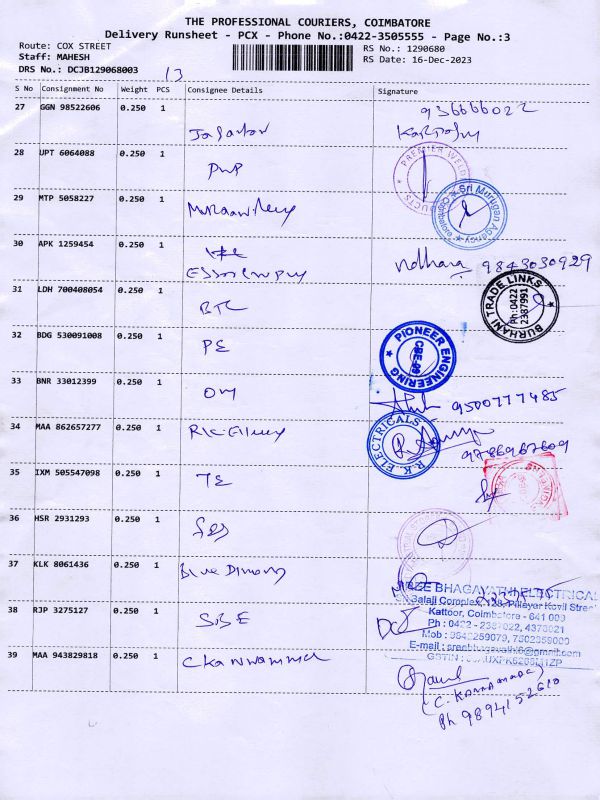 THE PROFESSIONAL COURIERS, COIMBATORE
Delivery Runsheet - PCX - Phone No.:0422-3505555 - Page No.:3
Route: COX STREET
RS No.: 1290680
Staff: MAHESH
RS Date: 16-Dec-2023
DRS No.: DCJB129068003
13
S No Consignment No Weight PCS Consignee Details Signature
27 GGN 98522606 0.250 1
9366666022
28 UPT 6064088 0.250 1
PWP
PREMIER WELD PRODUCTS
29 MTP 5058227 0.250 1
Sri Murugan Agency Coimbatore
30 APK 1259454 0.250 1
9843030929
31 LDH 700408054 0.250 1
BTL
BURHANI TRADE LINKS
Ph:0422
2387991
32 BDG 530091008 0.250 1
PE
PIONEER ENGINEERING
CBE-09
33 BNR 33012399 0.250 1
OM
9500777485
34 MAA 862657277 0.250 1
R.K. ELECTRICALS
9786967609
35 IXM 505547098 0.250 1
TE
36 HSR 2931293 0.250 1
37 KLK 8061436 0.250 1
Blue Dimond
SREE BHAGAVATHI ELECTRICAL
Balaji Complex, 128, Pillayar Kovil Street
38 RJP 3275127 0.250 1
SBE
Kattoor, Coimbatore - 641 009
Ph : 0422 - 2387022, 4370021
Mob : 9842259079, 7502359000
E-mail : sreebhagavathi6@gmail.com
GSTIN :
39 MAA 943829818 0.250 1
C Kannammal
(C. KANNAMMAL)
Ph 9894152610